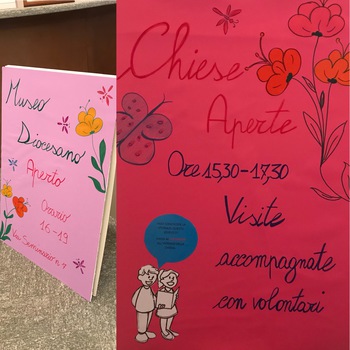 Museo
Diocesano
Aperto
Orario
16-19
Chiese
Aperte
Ore 15,30-17,30
Visite
accompagnate
con volontari